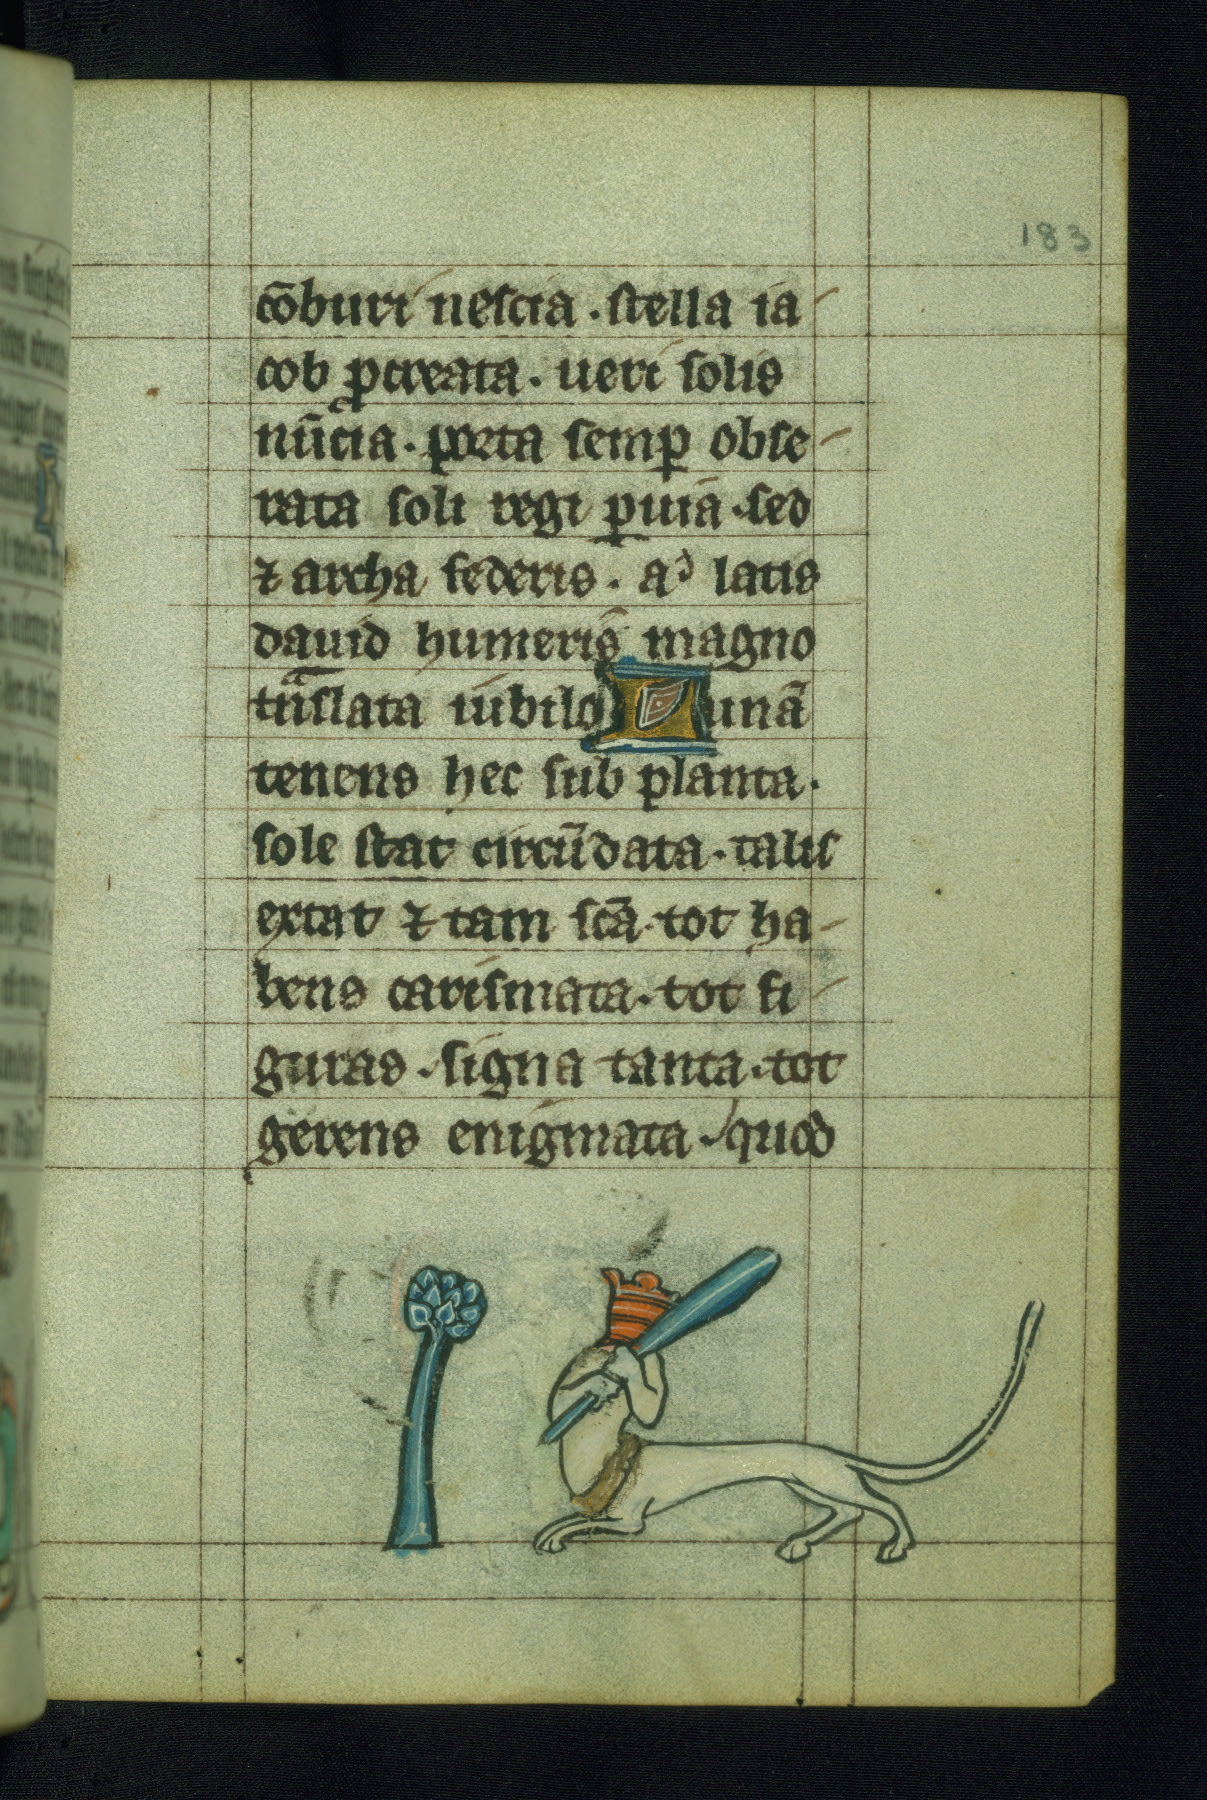 183
cōburi nescia . stella ia-
cob ꝓcreata . ueri solis
nūcia . porta semꝑ obse-
rata soli regi ꝑuia . sed
⁊ archa federis . a latis
dauid humeris magno
tͣnslata iubilo Lunā
tenens hec sub planta .
sole stat circūdata . talis
extat ⁊ tam scā . tot ha-
bens carismata . tot fi-
guras . signa tanta . tot
gerens enigmata . quod